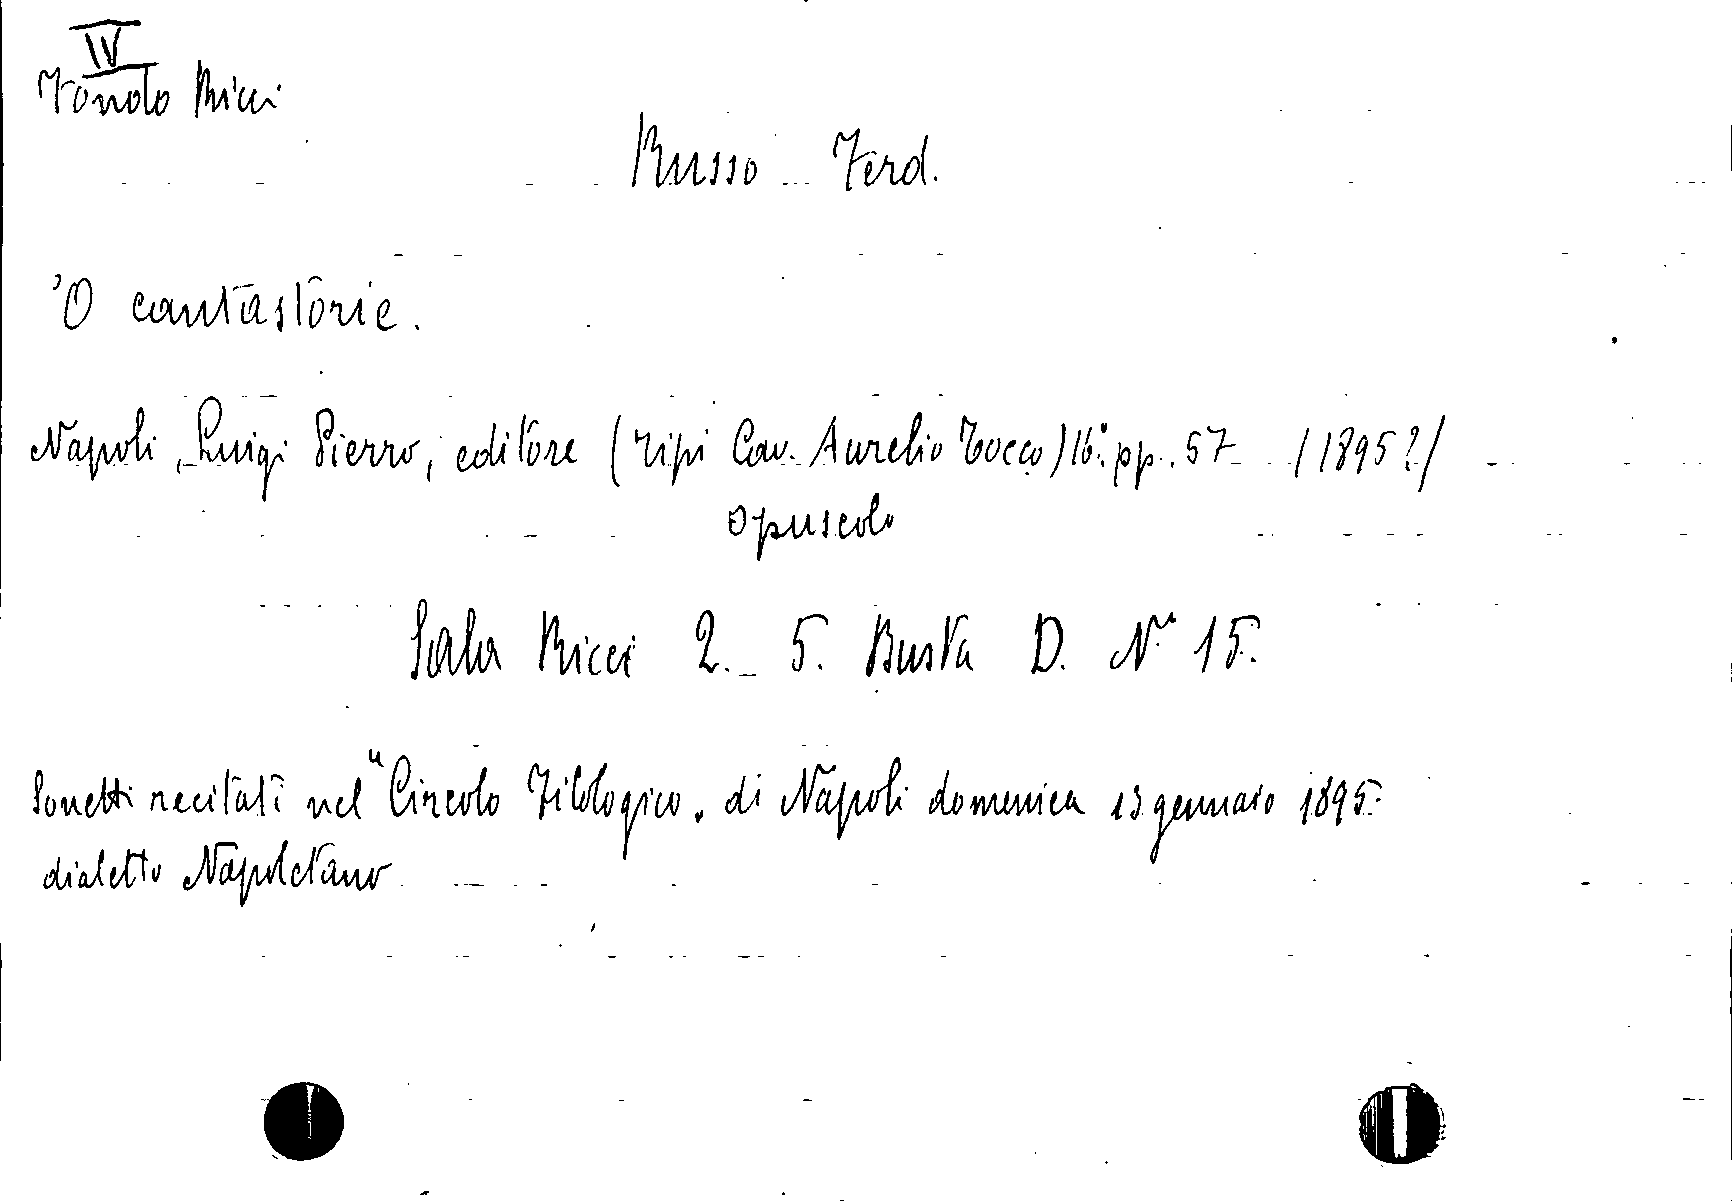 IV
Fondo Ricci
Russo Ferd.
'O cantastorie.
Napoli, Luigi Pierro, editore (Tipi Cav. Aurelio Tocco) 16° pp. 57 /1895?/
opuscolo
Sala Ricci 2. 5. Busta D. N° 15.
Sonetti recitati nel "Circolo Filologico" di Napoli domenica 13 gennaio 1895.
dialetto Napoletano